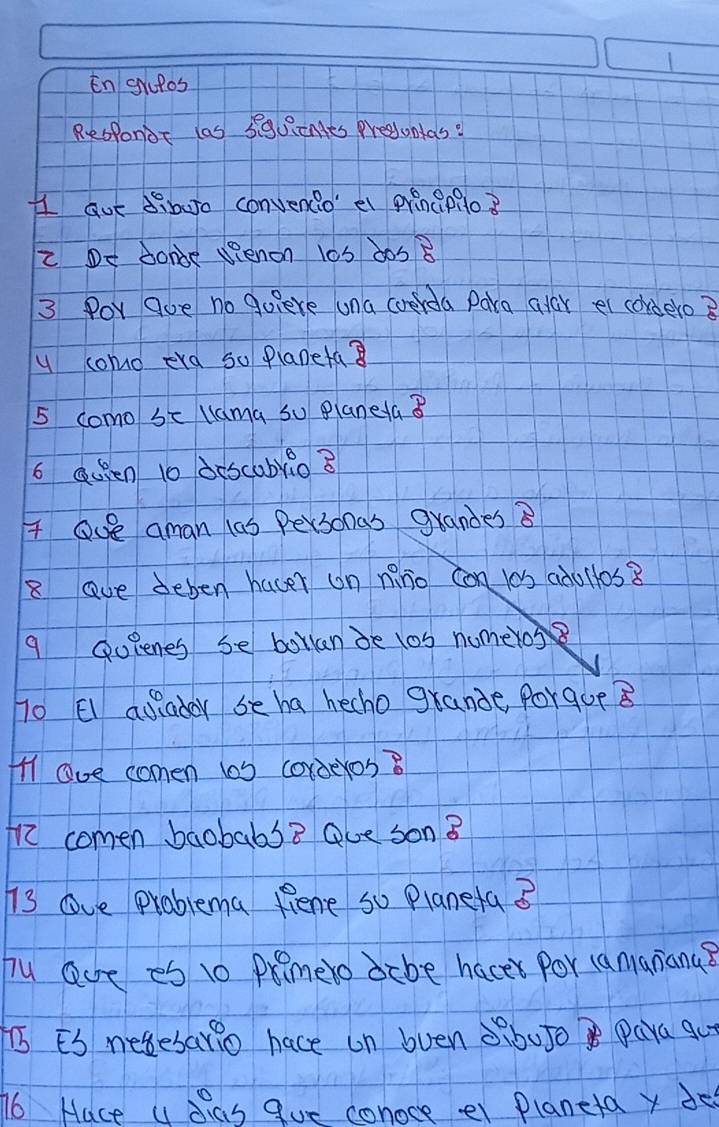 En grupos
Responde las siguientes preguntas:
1 Que dibujo convencio' el principito?
2 De donde vienen los dos?
3 Por que no quiere una cuerda para atar el cordero?
4 como era su planeta?
5 como se llama su planeta?
6 Quien lo descubrio?
7 Que aman las personas grandes?
8 Que deben hacer un niño con los adultos?
9 Quienes se borlan de los numeros?
10 El aviador se ha hecho grande, porque?
11 Que comen los corderos?
12 comen baobabs? Que son?
13 Que problema tiene su planeta?
14 Que es lo primero debe hacer por lamañana?
15 Es nesesario hace un buen dibujo para que
16 Hace 4 dias que conoce el planeta y des